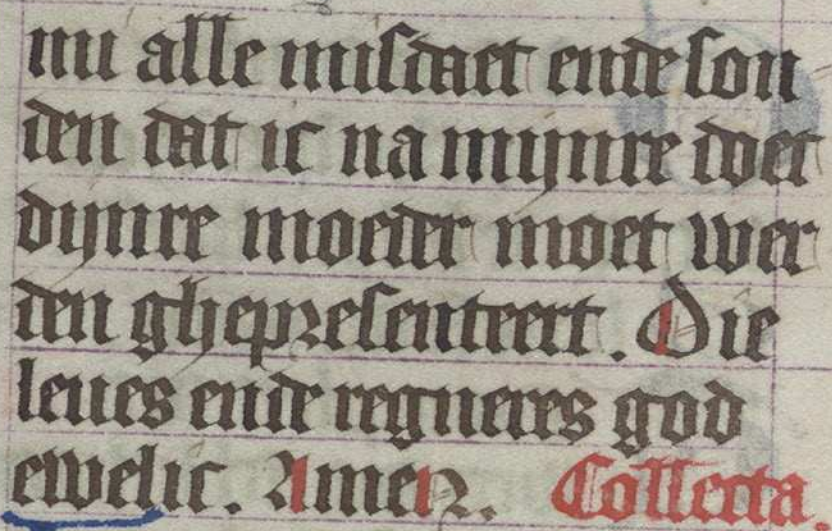 mi alle misdaet ende son
den dat ic na mijnre doet
dijnre moeder moet wer
den ghepresenteert. Die
leues ende regneres god
ewelic. Amen. Collecta.